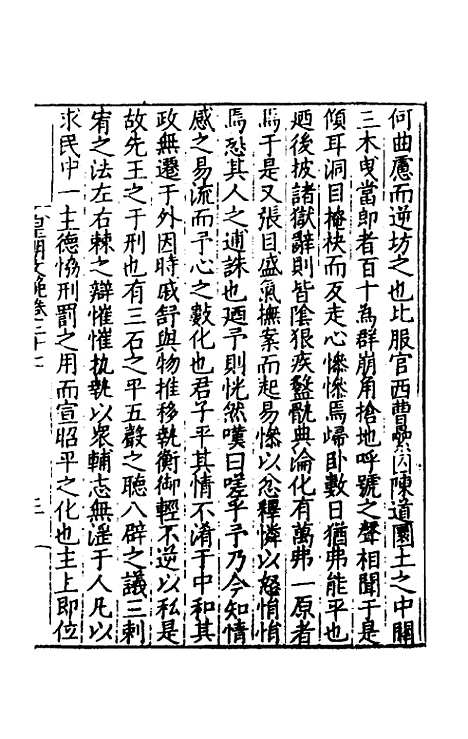 何曲慮而逆坊之也比服官西曹纍囚陳道圜土之中關
三木曳當郎者百十為群崩角搶地呼號之聲相聞于是
傾耳洞目掩袂而反走心慘慘焉歸卧數日猶弗能平也
廼後披諸獄辭則皆陰狠疾盭骫典淪化有萬弗一原者
焉于是又張目盛氣撫案而起易慘以忿釋憐以怒悁悁
焉恐其人之逋誅也廼予則恍然嘆曰嗟乎予乃今知情
感之易流而予心之數化也君子平其情不淆于中和其
政無遷于外因時戚舒與物推移執衡御輕不逆以私是
故先王之于刑也有三石之平五聲之聽八辟之議三刺
宥之法左右棘之辯慛慛執執以衆輔志無淫于人凡以
求民中一主德恊刑罰之用而宣昭平之化也主上即位
皇明文範卷三十七
三